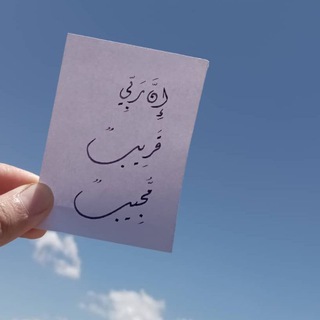 إِنَّ رَبِّي
قَرِيبٌ
مُّجِيبٌ